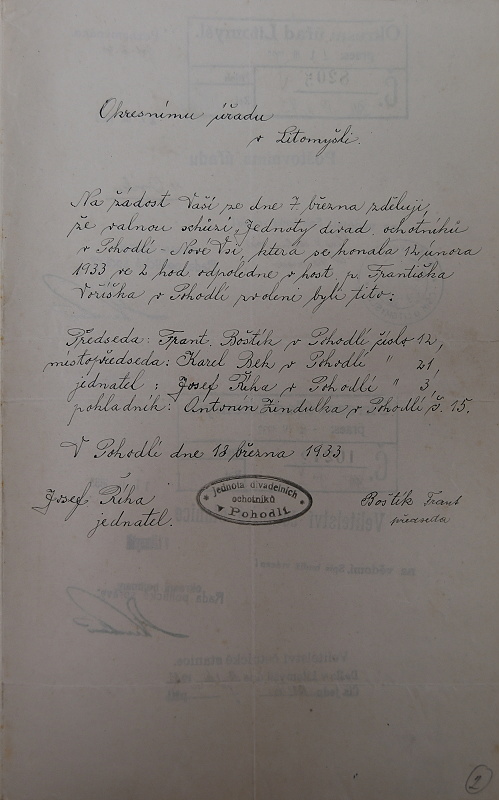 Okresnímu úřadu
v Litomyšli.
Na žádost Vaší ze dne 7. března zděluji,
že valnou schůzí „Jednoty divad. ochotníků
v Pohodlí - Nové Vsi, která se konala 12 února
1933 ve 2 hod. odpoledne v host. p. Františka
Voříška v Pohodlí zvoleni byli tito:
Předseda: Frant. Boštík v Pohodlí číslo 12,
místopředseda: Karel Bek v Pohodlí " 21,
jednatel: Josef Říha v Pohodlí " 3,
pokladník: Antonín Zindulka v Pohodlí č. 15.
V Pohodlí dne 13 března 1933
Josef Říha
jednatel.
Jednota divadelních
ochotníků
v Pohodlí.
Boštík Frant
předseda
2